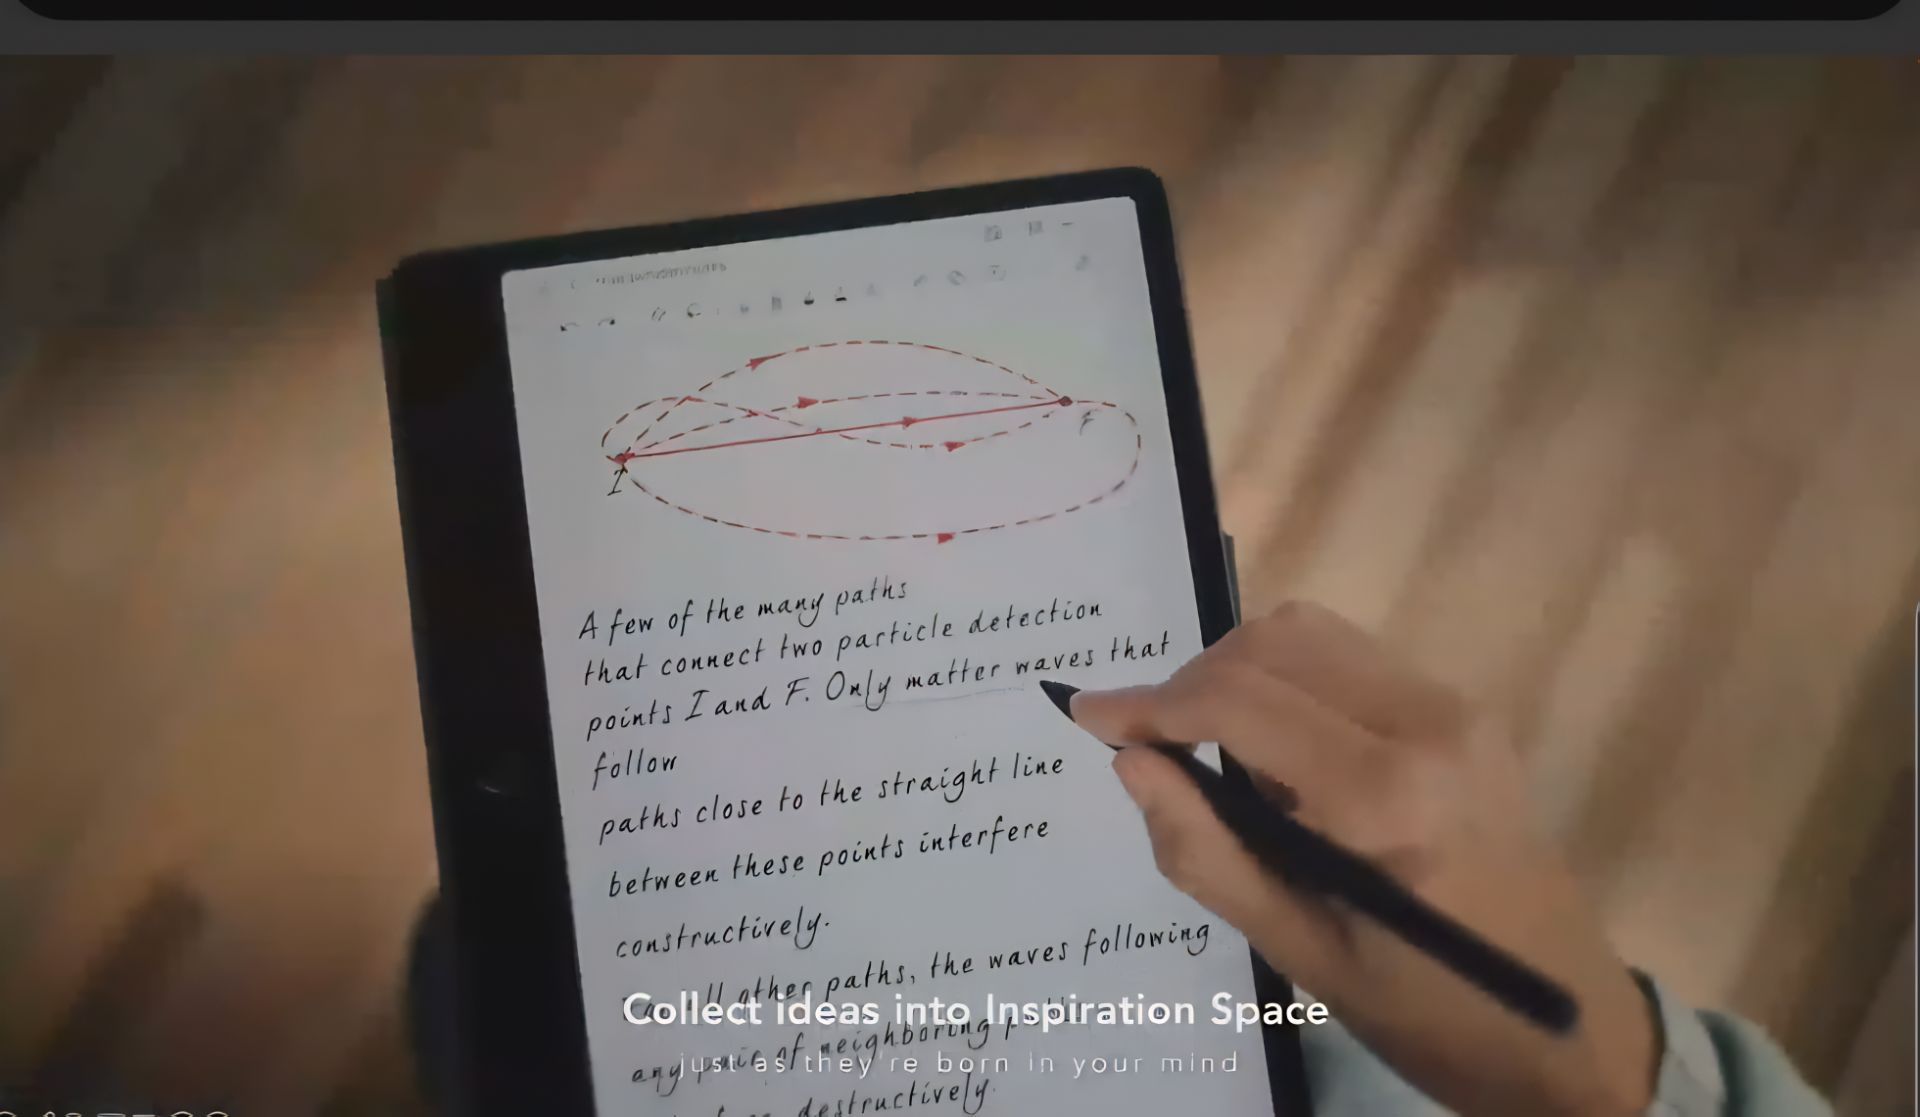 I
F
A few of the many paths
that connect two particle detection
points I and F. Only matter waves that
follow
paths close to the straight line
between these points interfere
constructively.
all other paths, the waves following
any pair of neighboring
destructively.
Collect ideas into Inspiration Space
just as they're born in your mind